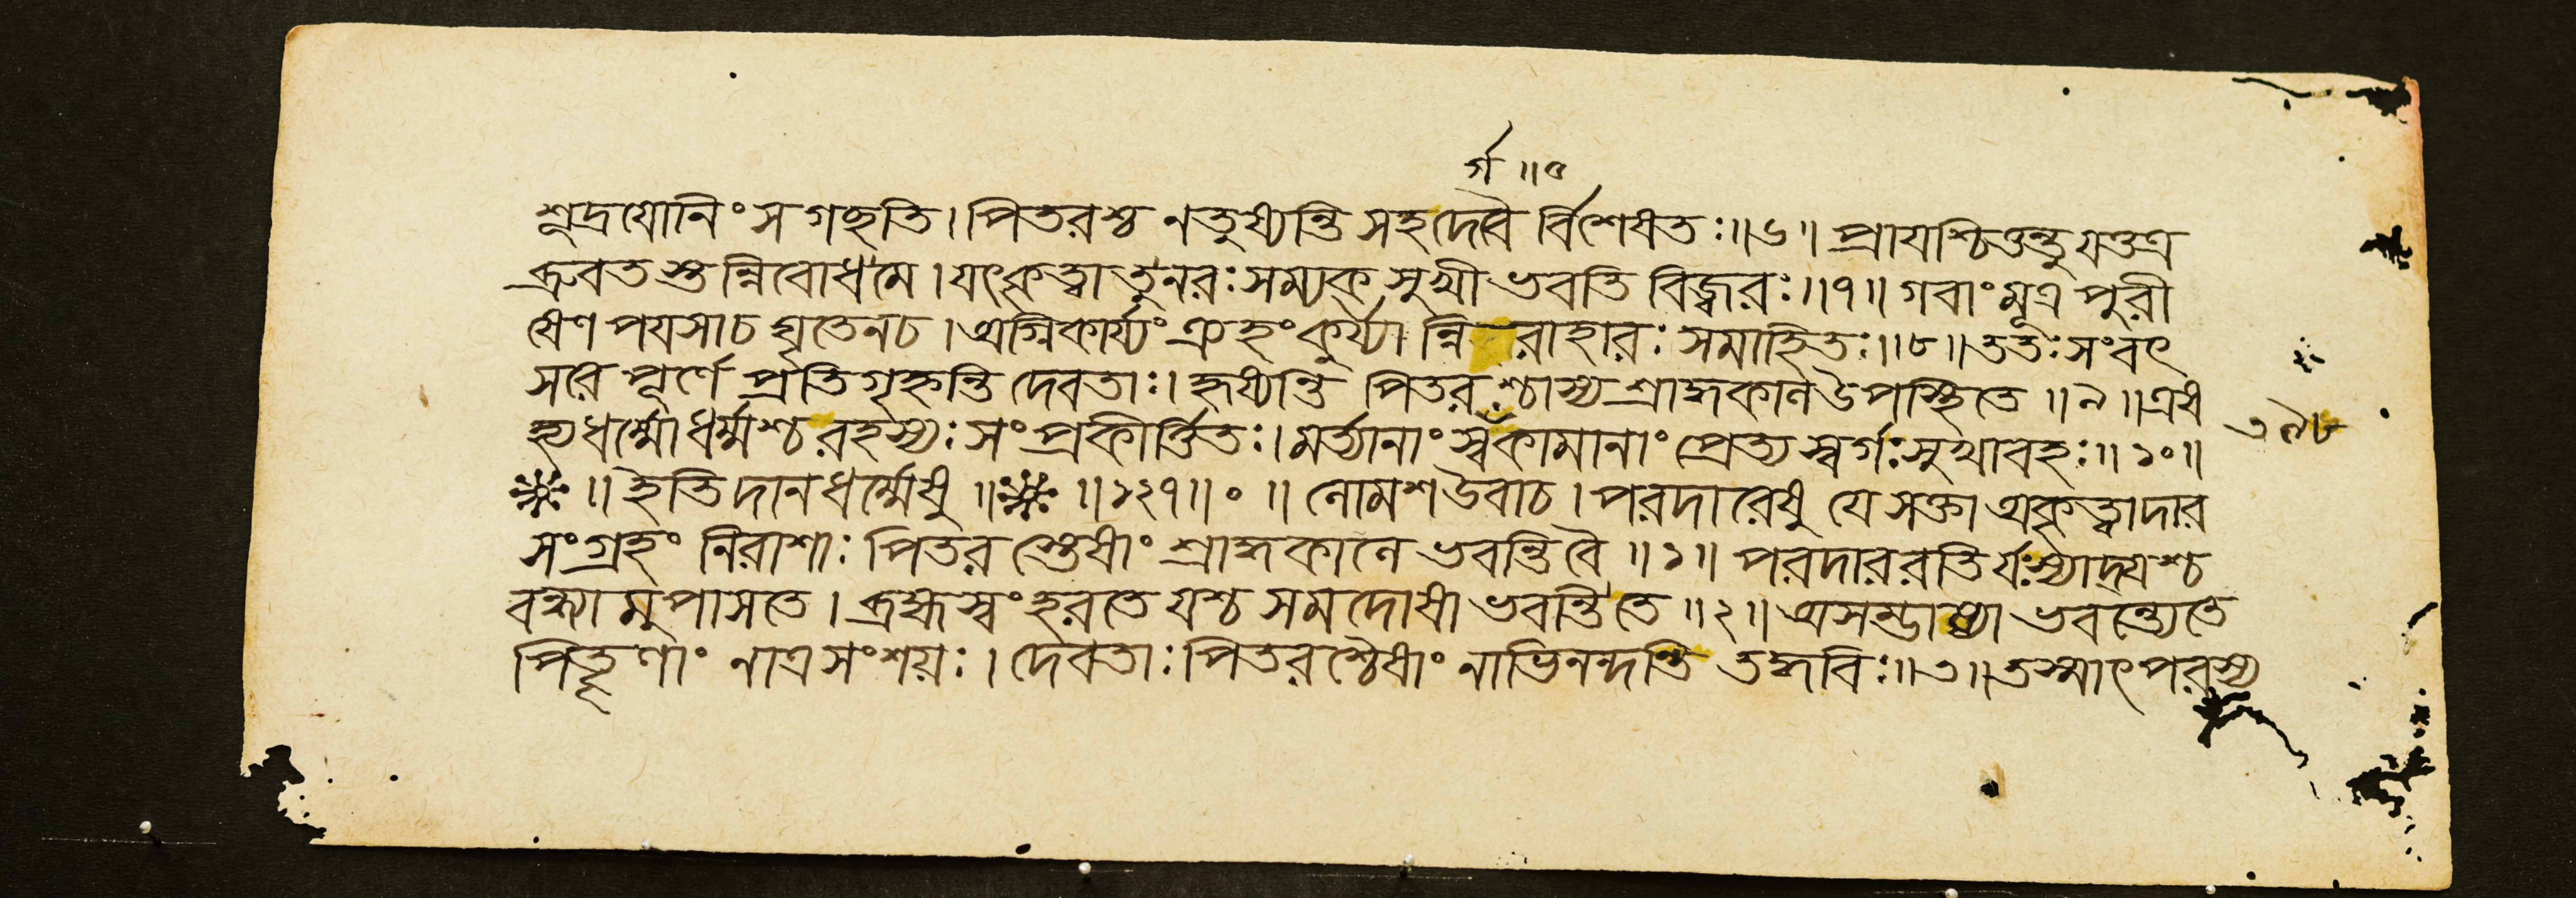 র্গ ॥ ৫
শূদ্রযোনিং স গচ্ছতি । পিতরশ্চ ন তুষ্যন্তি সহ দেবৈ র্বিশেষতঃ ॥ ৬ ॥ প্রাযশ্চিত্তন্তু যত্তত্র
ব্রুবত স্তন্নিবোধ মে । যৎকৃত্বা তু নরঃ সম্যক্ সুখী ভবতি বিজ্বরঃ ॥ ৭ ॥ গবাং মূত্র পুরী
ষেণ পযসা চ ঘৃতেন চ । অগ্নিকার্য্যং ত্র্যহং কুর্য্যা ন্নিরাহারঃ সমাহিতঃ ॥ ৮ ॥ ততঃ সংবৎ
সরে পূর্ণে প্রতিগৃহ্নন্তি দেবতাঃ । হৃষ্যন্তি পিতরশ্চাস্য শ্রাদ্ধকাল উপস্থিতে ॥ ৯ ॥ এষ
হ্যধর্ম্মো ধর্ম্মশ্চ রহস্যঃ সংপ্রকীর্ত্তিতঃ । মর্ত্যানাং স্বর্গকামানাং প্রেত্য স্বর্গঃ সুখাবহঃ ॥ ১০ ॥
৩৯৮
॥ ইতি দানধর্ম্মেষু ॥ ॥ ১২৭ ॥ ০ ॥ লোমশ উবাচ । পরদারেষু যে সক্তা অকৃত্বা দার
সংগ্রহং নিরাশাঃ পিতর স্তেষাং শ্রাদ্ধকালে ভবন্তি বৈ ॥ ১ ॥ পরদাররতির্যঃ স্যাদ্যশ্চ
বন্ধ্যামুপাসতে । ব্রহ্মস্বং হরতে যশ্চ সমদোষা ভবন্তি তে ॥ ২ ॥ অসম্ভাষ্যা ভবন্ত্যেতে
পিতৄণাং নাত্র সংশয়ঃ । দেবতাঃ পিতরশ্চৈষাং নাভিনন্দন্তি তদ্ধবিঃ ॥ ৩ ॥ তস্মাৎ পরস্য